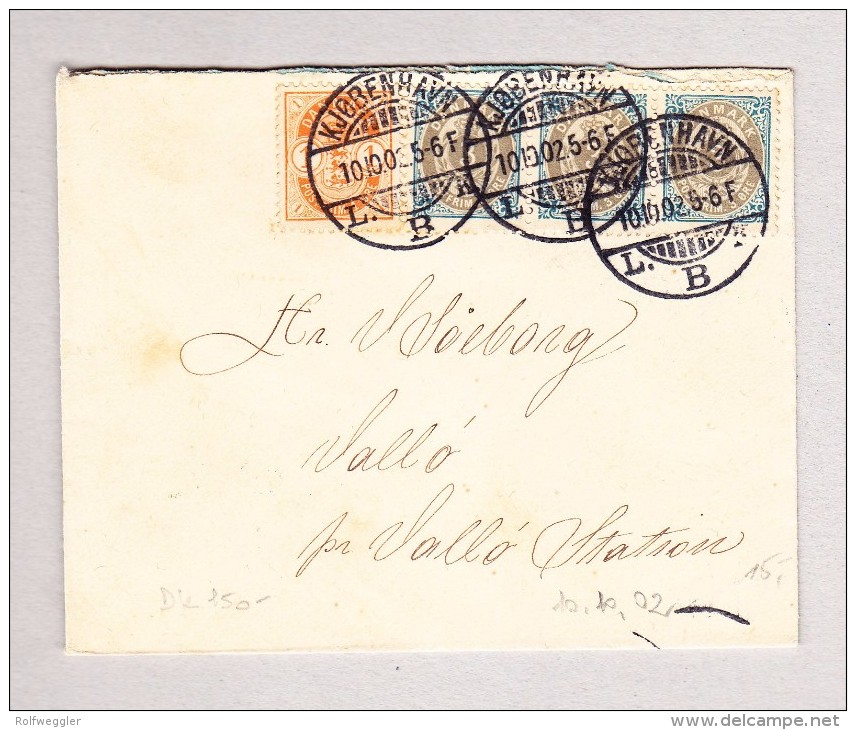 KJØBENHAVN KJØBENHAVN KJØBENHAVN
10.10.02.5-6 F 10.10.02.5-6 F 10.10.02.5-6 F
L. B L. B L. B
Hr. Søeborg
Vallö
pr Vallö Station
15,-
DK 150-
10.10.02
Rolfweggler
www.delcampe.net